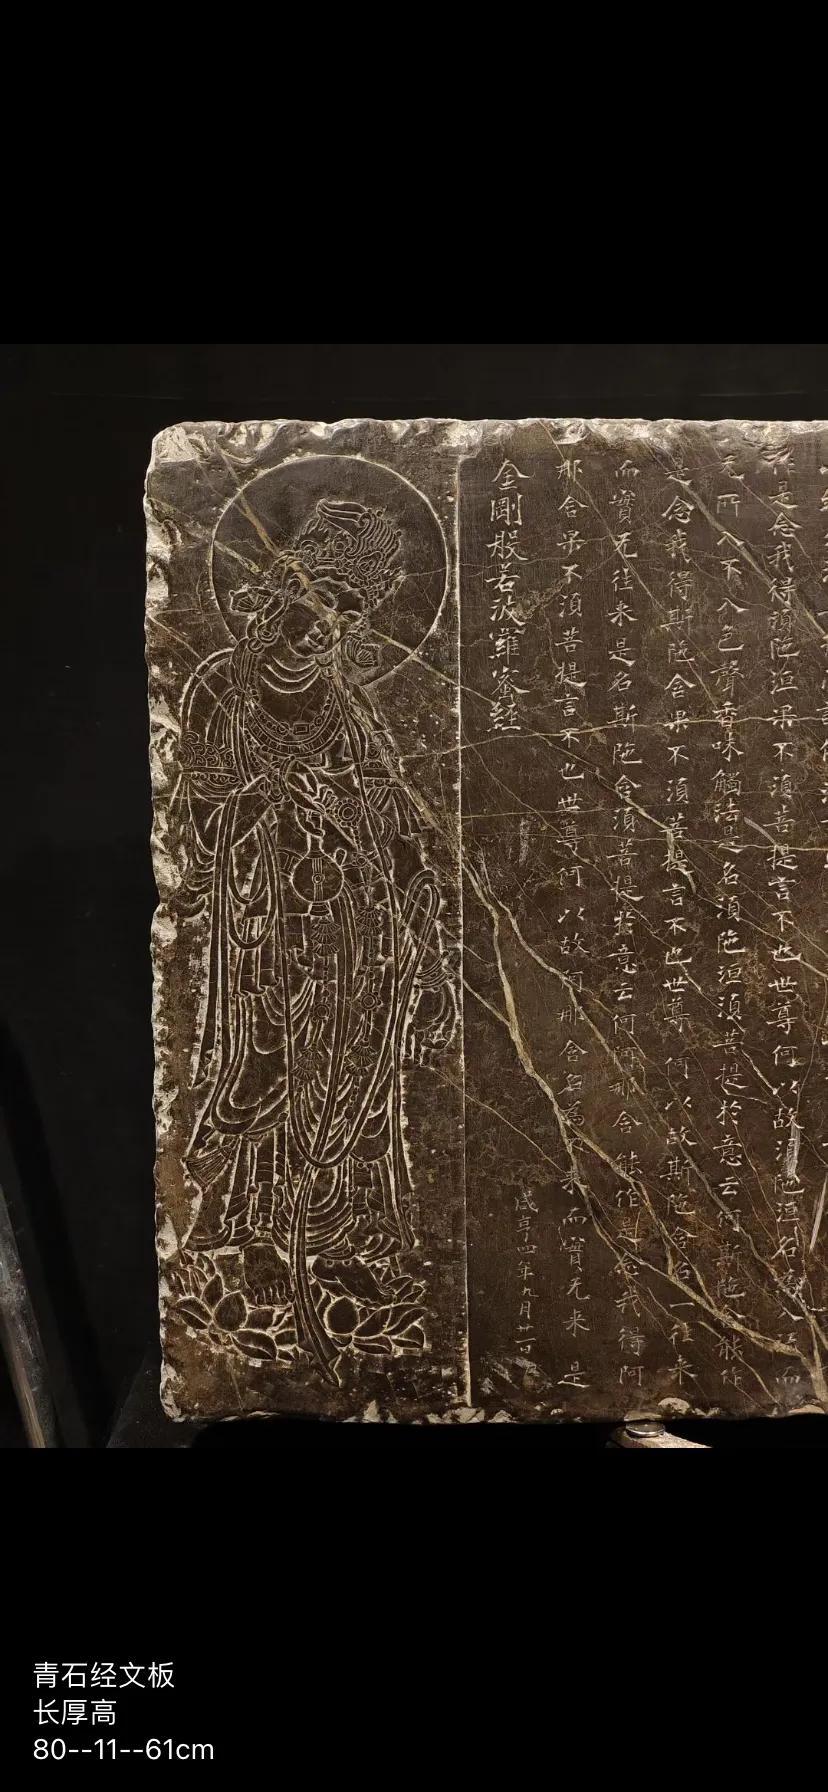 作是念我得須陁洹果不須菩提言不也世尊何以故須陁洹名為入流而
无所入不入色聲香味觸法是名須陁洹須菩提於意云何斯陁含能作
是念我得斯陁含果不須菩提言不也世尊何以故斯陁含名一往来
而實无往来是名斯陁含須菩提於意云何阿那含能作是念我得阿
那含果不須菩提言不也世尊何以故阿那含名為不来而實无来是
金剛般若波羅蜜経
咸亨四年九月廿一日
青石经文板
长厚高
80--11--61cm